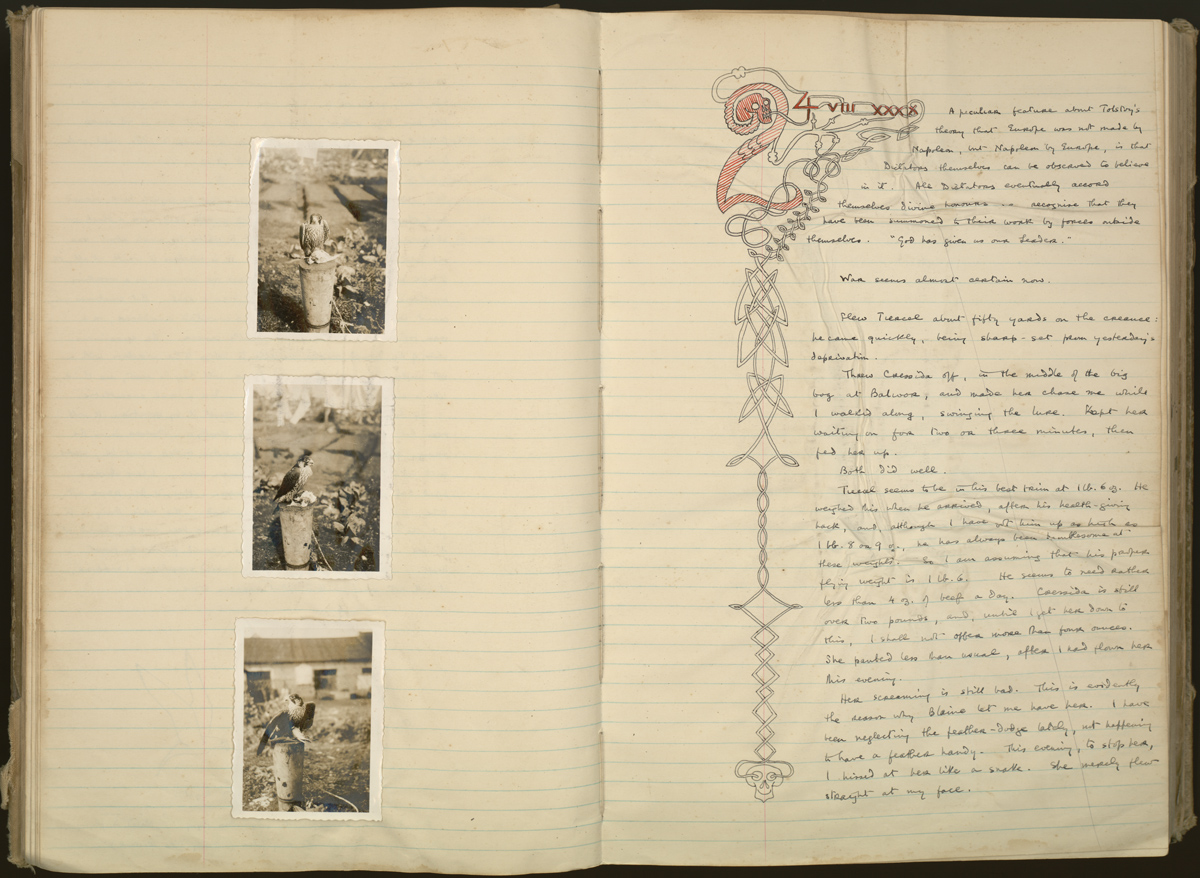 24 VIII XXXX
A peculiar feature about Tolstoy's
theory that Europe was not made by
Napoleon, but Napoleon by Europe, is that
Dictators themselves can be observed to believe
in it. All Dictators eventually accord
themselves divine honours .. recognise that they
have been summoned to their work by forces outside
themselves. "God has given us our Leader."
War seems almost certain now.
Flew Tiercel about fifty yards on the creance:
he came quickly, being sharp-set from yesterday's
deprivation.
Threw Cressida off, in the middle of the big
bog at Balwor, and made her chase me while
I walked along, swinging the lure. Kept her
waiting on for two or three minutes, then
fed her up.
Both did well.
Tiercel seems to be in his best trim at 1 lb. 6 oz. He
weighed this when he arrived, after his health-giving
hack, and, although I have got him up as high as
1 lb. 8 or 9 oz., he has always been troublesome at
these weights. So I am assuming that his proper
flying weight is 1 lb. 6. He seems to need rather
less than 4 oz. of beef a day. Cressida is still
over two pounds, and, until I get her down to
this, I shall not offer more than four ounces.
She panted less than usual, after I had flown her
this evening.
Her screaming is still bad. This is evidently
the reason why Blaine let me have her. I have
been neglecting the feather-dodge lately, not happening
to have a feather handy. This evening, to stop her,
I hissed at her like a snake. She merely flew
straight at my face.